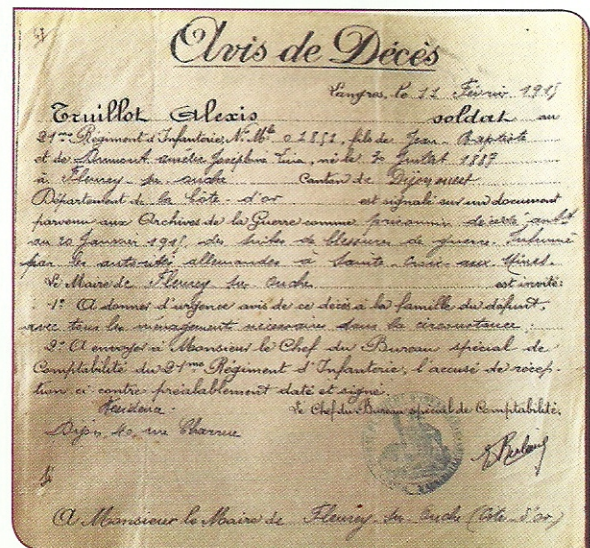 Avis de Décès
Langres, le 11 Février 1915
Truillot Alexis soldat au
21me Régiment d'Infanterie, N° Mle 01851, fils de Jean-Baptiste
et de Joséphine né le Juillet 1887
à Fleurey-sur-ouche Canton de Dijon ouest
Département de la Côte-d'or est signalé sur un document
parvenu aux Archives de la Guerre comme prisonnier décédé
au 20 Janvier 1915, des suites de blessures de guerre. Inhumé
par les autorités allemandes à Sainte-Croix-aux-Mines.
Le Maire de Fleurey sur Ouche est invité:
1° A donner d'urgence avis de ce décès à la famille du défunt,
avec tous les ménagements nécessaires dans la circonstance;
2° A envoyer à Monsieur le Chef du Bureau spécial de
Comptabilité du 21me Régiment d'Infanterie, l'accusé de récep-
tion ci-contre préalablement daté et signé.
Résidence. Le Chef du Bureau spécial de Comptabilité,
Dijon rue Charrue
A Monsieur le Maire de Fleurey-sur-Ouche (Côte-d'or)